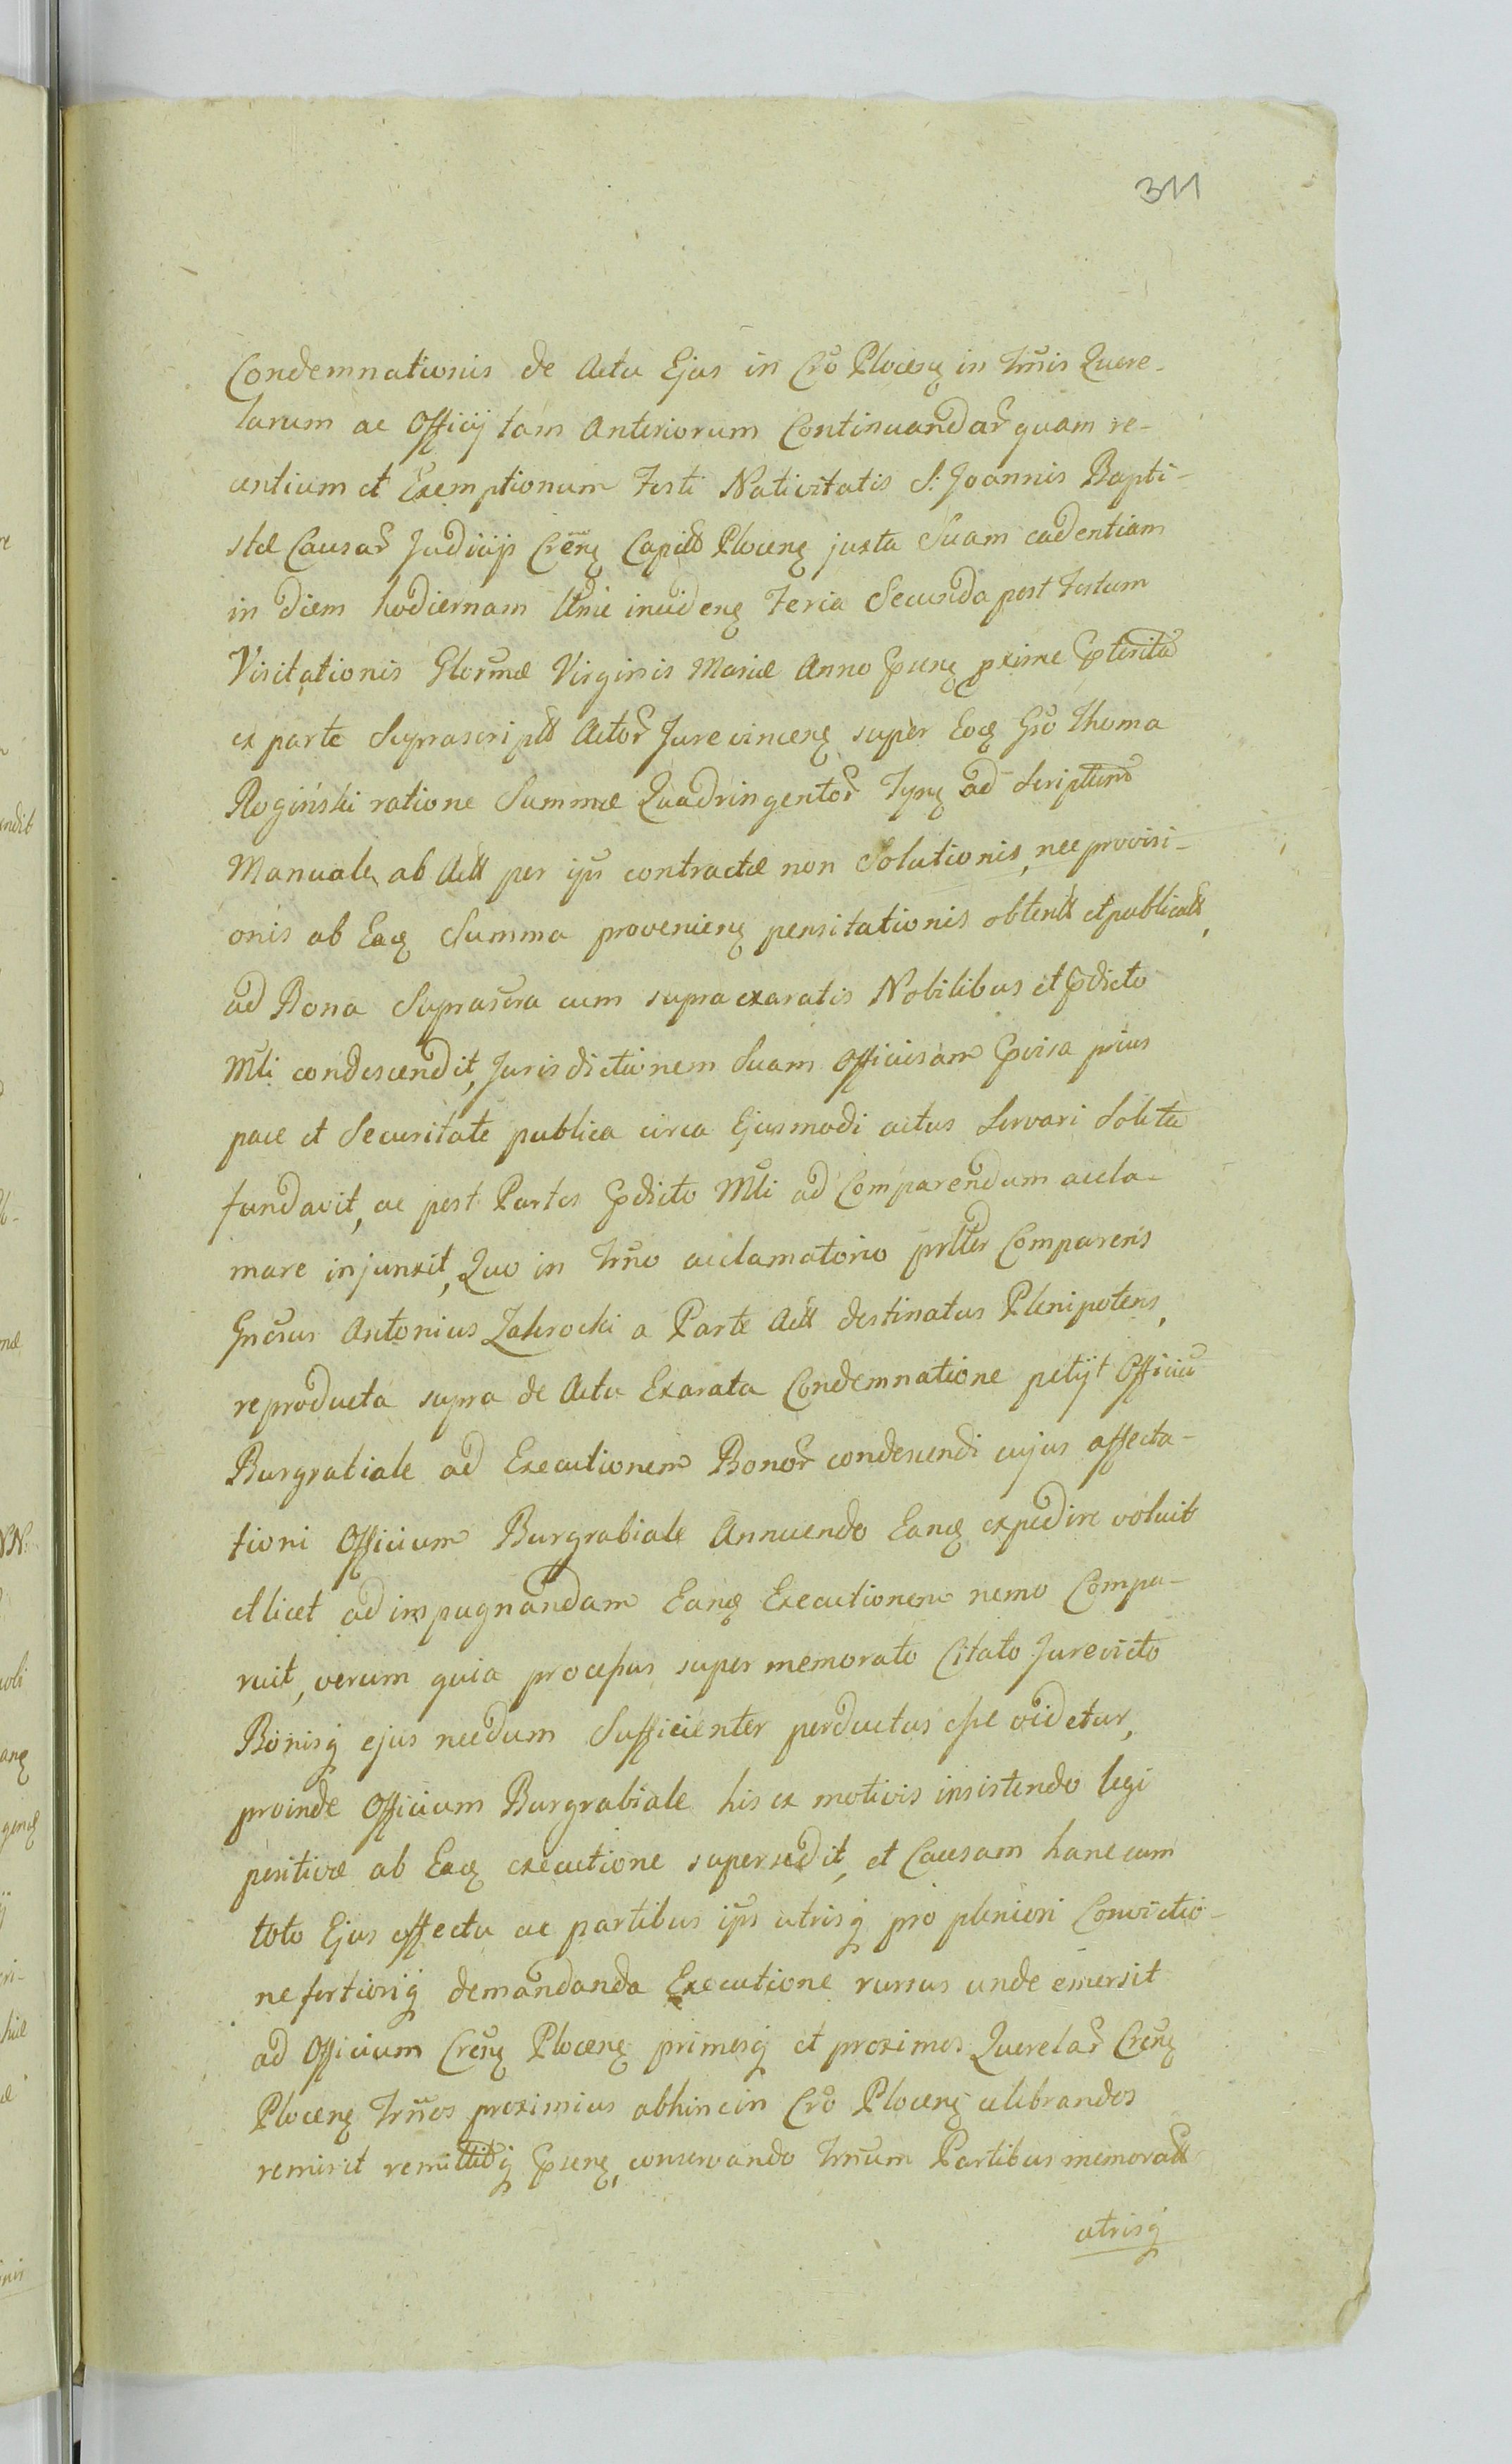 311
Condemnationis de Actu Ejus in Crō Plocenꝫ in Trm̃is Quere-
larum ac Officij tam Anteriorum Continuandar̃ quam re-
centium et Exemptionum Festi Nativitatis S: Joannis Bapti-
stæ Causar̃ Judicijs Cren̄ꝫ Capitt Plocenꝫ juxta Suam cadentiam
in diem hodiernam incidenꝫ Feria Secunda post Festum
Visitationis Glorm̄æ Virginis Mariæ Anno p̃senꝫ prime p̃teritā
ex parte Suprascriptt Actor̃ Jurevincenꝫ super Eoꝫ Gn̄o Thoma
Rogiński ratione Summæ Quadringentor̃ Tynꝫ ad Scriptum
Manuale ab Actt per ips̄ contractæ non Solutionis, nec provisi-
onis ab Eaꝫ Summa provenienꝫ pensitationis obtentt et publicatt,
ad Bona Suprascr̄a cum supra exaratis Nobilibus et p̃dicto
Mli condescendit, Jurisdictionem Suam Officiosam p̃visa prius
pace et Securitate publica circa Ejusmodi actus Servari Solita
fundavit, ac post Partes p̃dicto Mli ad Comparendum accla-
mare injunxit, Quo in Trm̃no acclamatorio prltter Comparens
Gn̄rsus Antonius Zakrocki a Parte Actt destinatus Plenipotens,
reproducta supra de Actu Exarata Condemnatione petijt Officiū
Burgrabiale ad Executionem Bonor̃ condescendi cujus affecta-
tioni Officium Burgrabiale Annuendo Eanꝫ expedire voluit
et licet ad impugnandam Eanꝫ Executionem nemo Compa-
ruit, verum quia processus super memorato Citato Jurevicto
Bonisq ejus necdum Sufficienter perductus esse videtur,
proinde Officium Burgrabiale his ex motivis insistendo legi
positivæ ab Eaꝫ executione supersedit, et Causam hanc cum
toto Ejus effectu ac partibus ip̃s utrisq pro pleniori Convictio-
ne fortiorisq demandanda Executione rursus unde emersit
ad Officium Cren̄ꝫ Plocenꝫ primosq et proximos Querelar̃ Cren̄ꝫ
Plocenꝫ Trm̃nos proximius abhinc in Crō Plocenꝫ celebrandos
remisit remittitq p̃senꝫ, conservando Trm̃num Partibus memoratt
utrisq